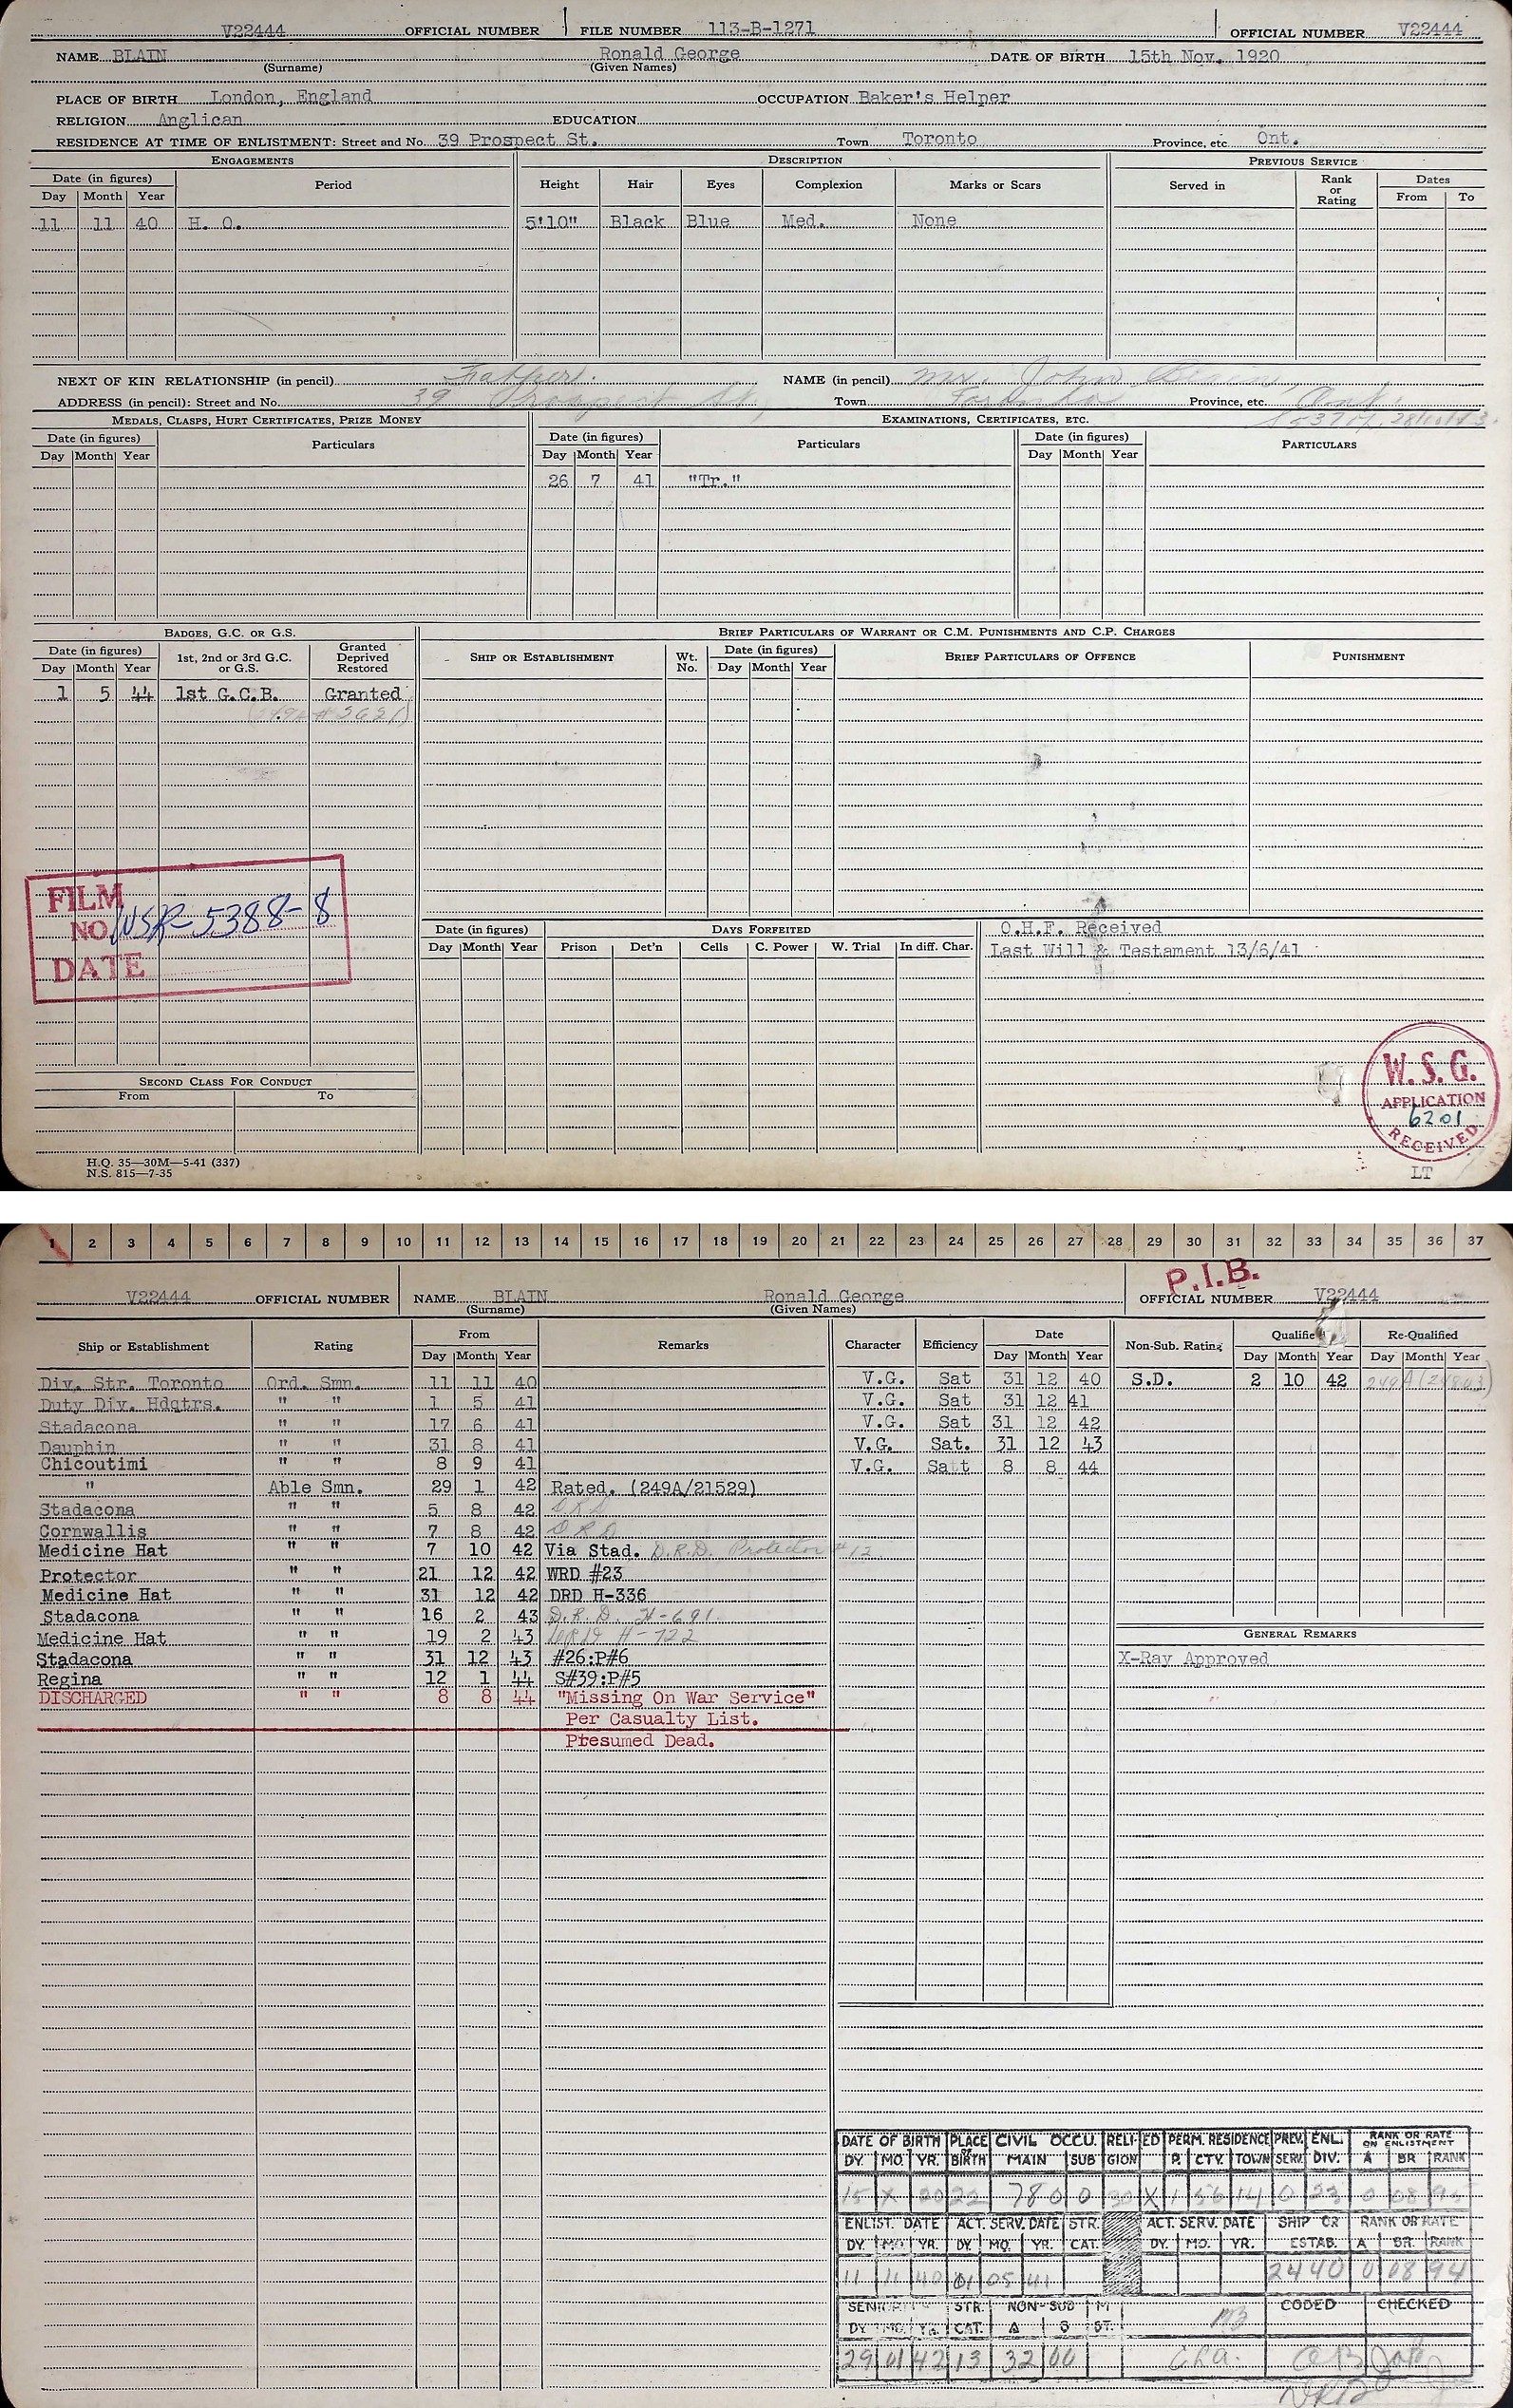 V22444 OFFICIAL NUMBER FILE NUMBER 113-B-1271 OFFICIAL NUMBER V22444
NAME BLAIN Ronald George DATE OF BIRTH 15th Nov. 1920
(Surname) (Given Names)
PLACE OF BIRTH London, England OCCUPATION Baker's Helper
RELIGION Anglican EDUCATION
RESIDENCE AT TIME OF ENLISTMENT: Street and No. 39 Prospect St. Town Toronto Province, etc. Ont.
ENGAGEMENTS DESCRIPTION PREVIOUS SERVICE
Date (in figures) Period Height Hair Eyes Complexion Marks or Scars Served in Rank or Rating Dates
Day Month Year From To
11 11 40 H. O. 5'10" Black Blue Med. None
NEXT OF KIN RELATIONSHIP (in pencil) Father. NAME (in pencil) Mr. John Blain
ADDRESS (in pencil): Street and No. 39 Prospect St, Town Toronto Province, etc. Ont.
MEDALS, CLASPS, HURT CERTIFICATES, PRIZE MONEY EXAMINATIONS, CERTIFICATES, ETC.
Date (in figures) Particulars Date (in figures) Particulars Date (in figures) PARTICULARS
Day Month Year Day Month Year Day Month Year
26 7 41 "Tr."
BADGES, G.C. OR G.S. BRIEF PARTICULARS OF WARRANT OR C.M. PUNISHMENTS AND C.P. CHARGES
Date (in figures) 1st, 2nd or 3rd G.C. or G.S. Granted Deprived Restored SHIP OR ESTABLISHMENT Wt. No. Date (in figures) BRIEF PARTICULARS OF OFFENCE PUNISHMENT
Day Month Year Day Month Year
1 5 44 1st G.C.B. Granted
FILM
NO. WSR-5388-8
DATE
Date (in figures) DAYS FORFEITED O.H.F. Received
Day Month Year Prison Det'n Cells C. Power W. Trial In diff. Char. Last Will & Testament 13/6/41
SECOND CLASS FOR CONDUCT
From To
W.S.G.
APPLICATION
6201
RECEIVED
LT
H.Q. 35—30M—5-41 (337)
N.S. 815—7-35
1 2 3 4 5 6 7 8 9 10 11 12 13 14 15 16 17 18 19 20 21 22 23 24 25 26 27 28 29 30 31 32 33 34 35 36 37
P.I.B.
V22444 OFFICIAL NUMBER NAME BLAIN Ronald George OFFICIAL NUMBER V22444
(Surname) (Given Names)
Ship or Establishment Rating From Remarks Character Efficiency Date Non-Sub. Rating Qualified Re-Qualified
Day Month Year Day Month Year Day Month Year Day Month Year
Div. Str. Toronto Ord. Smn. 11 11 40 V.G. Sat 31 12 40 S.D. 2 10 42
Duty Div. Hdqtrs. " " 1 5 41 V.G. Sat 31 12 41
Stadacona " " 17 6 41 V.G. Sat 31 12 42
Dauphin " " 31 8 41 V.G. Sat. 31 12 43
Chicoutimi " " 8 9 41 V.G. Satt 8 8 44
" Able Smn. 29 1 42 Rated. (249A/21529)
Stadacona " " 5 8 42 DRD
Cornwallis " " 7 8 42 DRD
Medicine Hat " " 7 10 42 Via Stad. D.R.D. Protector #12
Protector " " 21 12 42 WRD #23
Medicine Hat " " 31 12 42 DRD H-336
Stadacona " " 16 2 43 D.R.D. H-691
Medicine Hat " " 19 2 43 H-722
Stadacona " " 31 12 43 #26:P#6
Regina " " 12 1 44 S#39:P#5
DISCHARGED " " 8 8 44 "Missing On War Service"
Per Casualty List.
Presumed Dead.
GENERAL REMARKS
X-Ray Approved
DATE OF BIRTH PLACE OF BIRTH CIVIL OCCU. RELIGION ED PERM. RESIDENCE PREV. SERV. ENL. DIV. RANK OR RATE ON ENLISTMENT
DY. MO. YR. MAIN SUB P. CTY. TOWN A BR RANK
15 X 20 22 780 0 30 X 1 56 14 0 23 0 08 95
ENLIST. DATE ACT. SERV. DATE STR. CAT. ACT. SERV. DATE SHIP OR ESTAB. RANK OR RATE
DY. MO. YR. DY. MO. YR. DY. MO. YR. A BR. RANK
11 11 40 01 05 41 2440 0 08 94
STR. CAT. NON-SUB CODED CHECKED
DY MO. YR. A S ST.
29 01 42 13 32 00